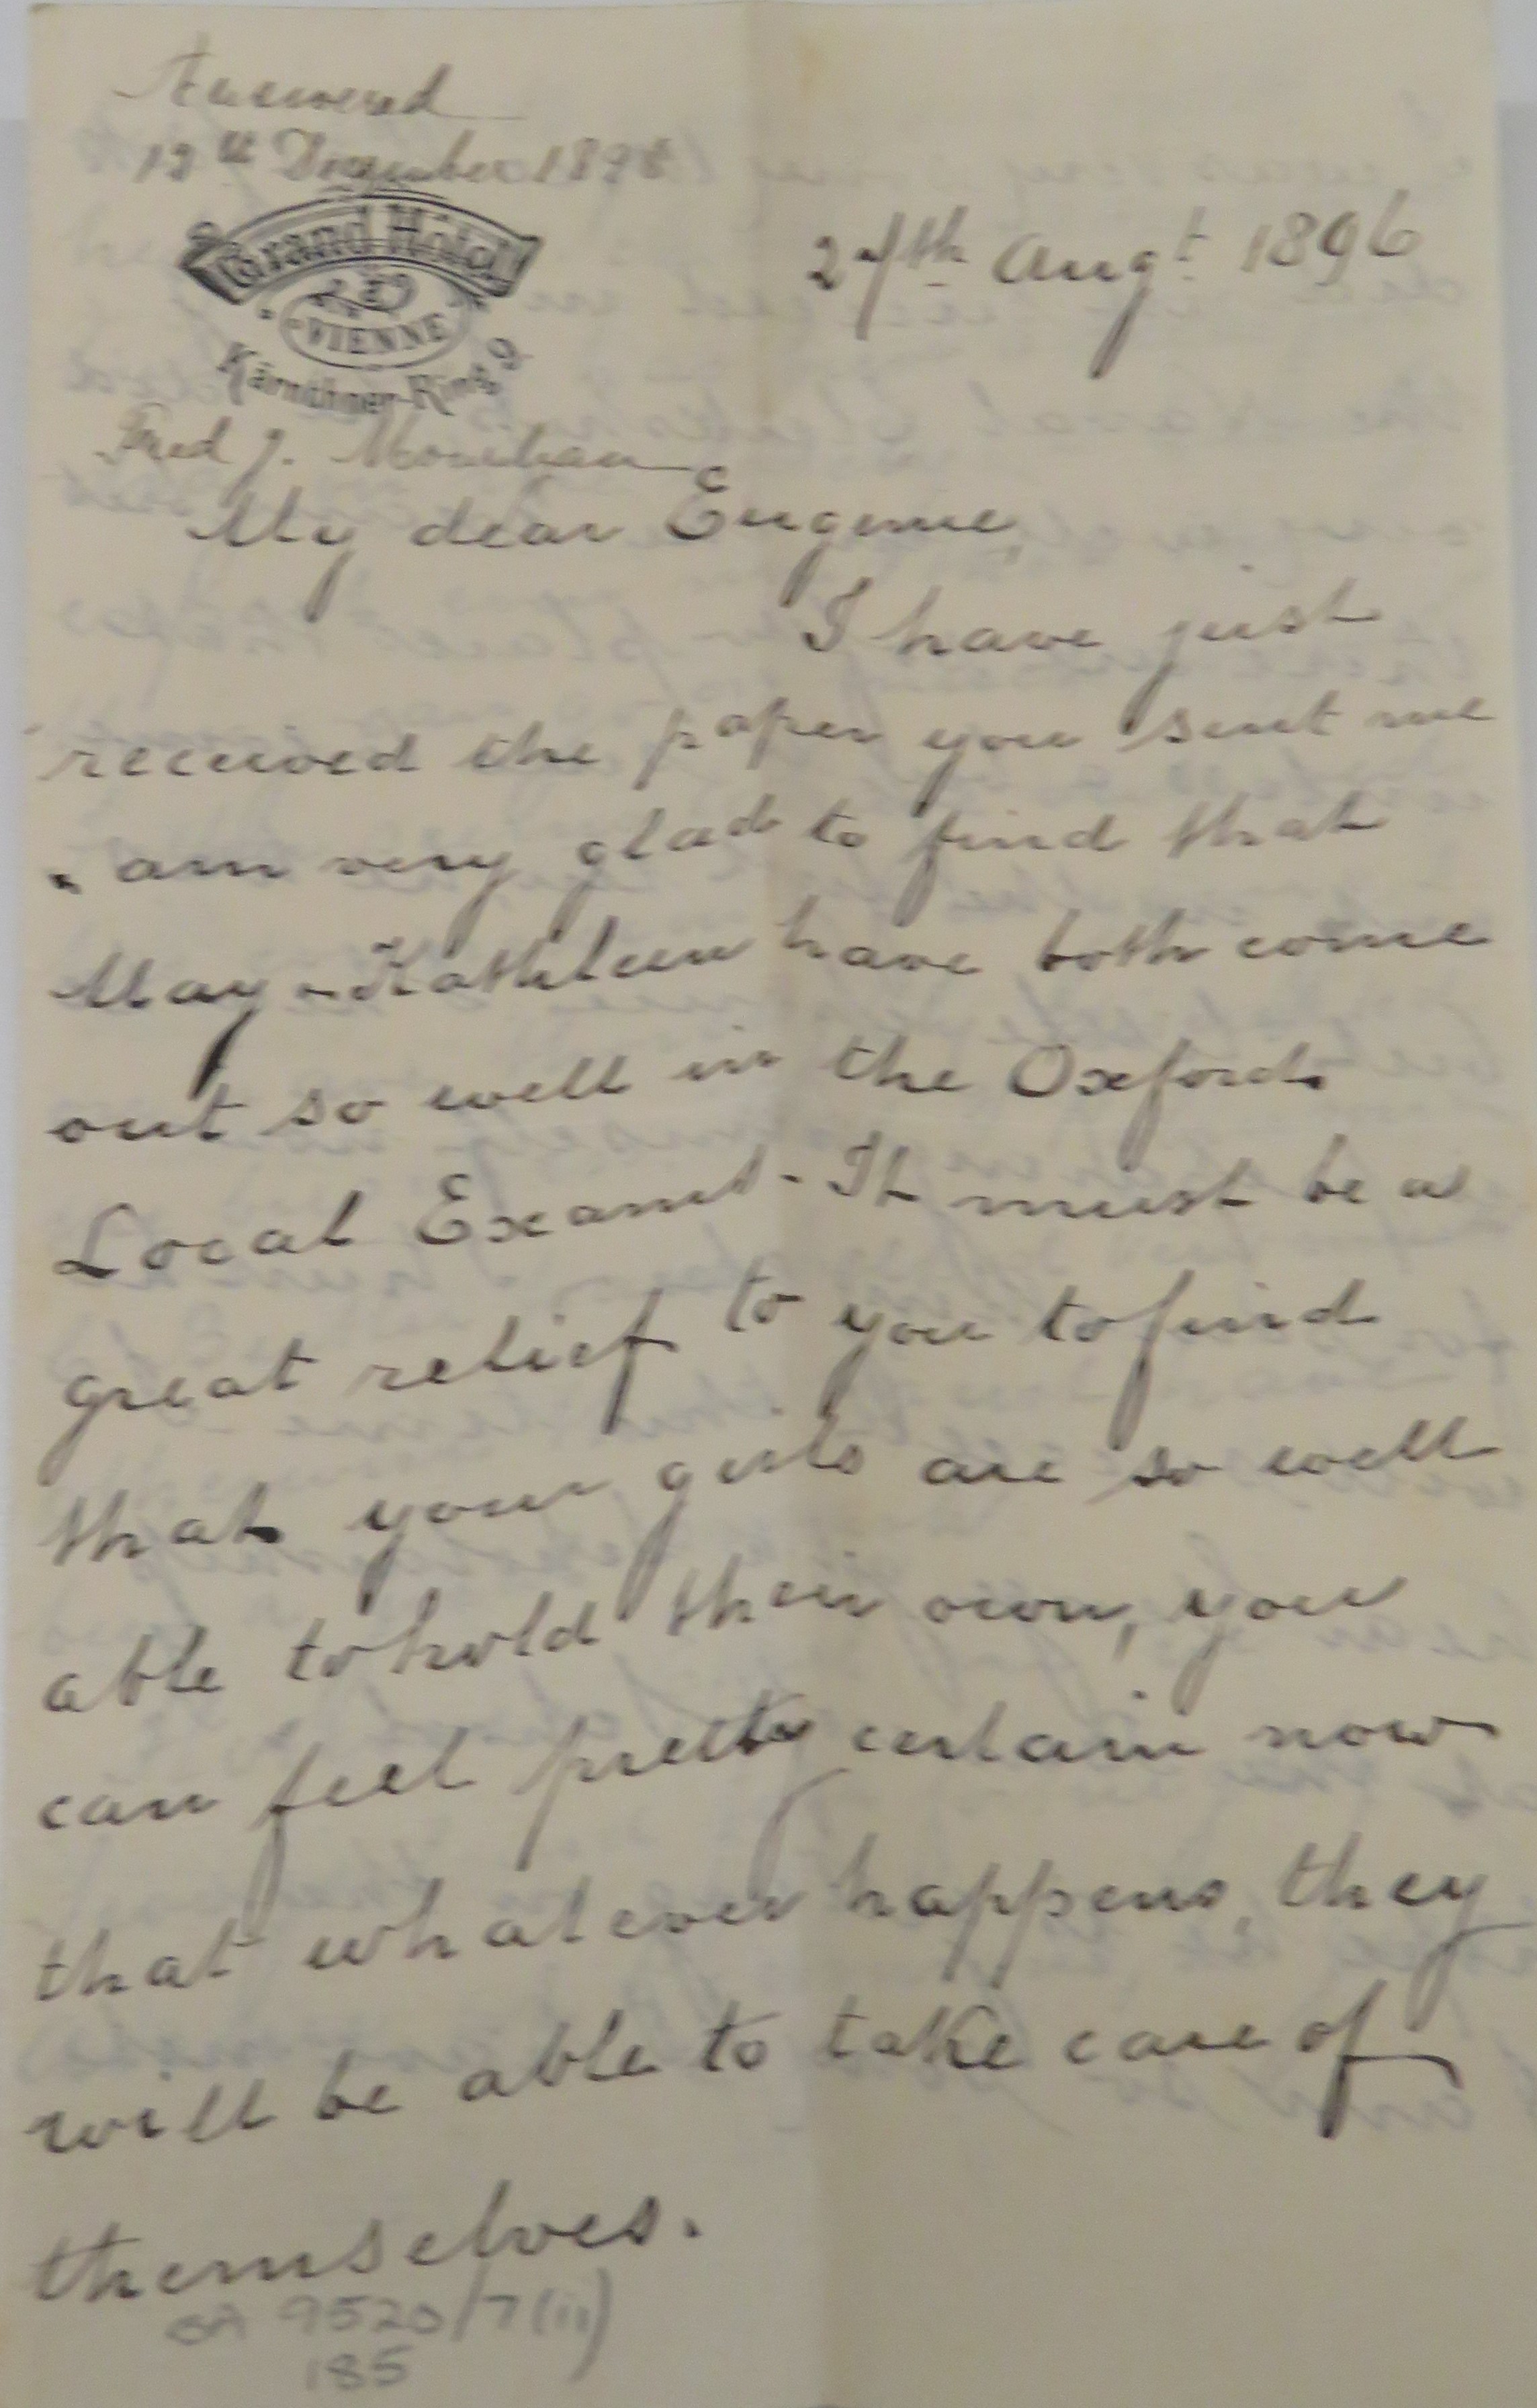 Answered
12th December 1896
Grand Hôtel
VIENNE
Kärnthner-Ring, 9.
27th Augt. 1896
Fred J.
My dear Eugenie,
I have just
received the paper you sent me
& am very glad to find that
May & Kathleen have both come
out so well in the Oxford
Local Exams. It must be a
great relief to you to find
that your girls are so well
able to hold their own, you
can feel pretty certain now
that whatever happens, they
will be able to take care of
themselves.
9520/7(iii)
185